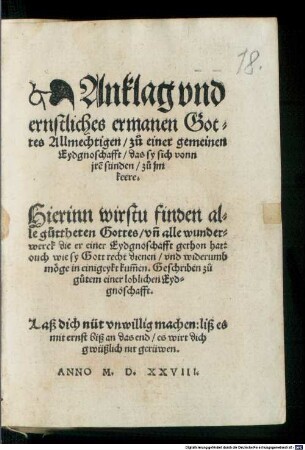 18.
Anklag vnd
ernstliches ermanen Got⸗
tes Allmechtigen / zů einer gemeinen
Eydgnoschafft / das sy sich vonn
jrē sünden / zů jm
keere.
Hierinn wirstu finden al⸗
le gůttheten Gottes / vñ alle wunder⸗
werck die er einer Eydgnoschafft gethon hat:
ouch wie sy Gott recht dienen / vnd widerumb
möge in einigkeyt kum̄en. Geschriben zů
gůtem einer loblichen Eyd⸗
gnoschafft.
Laß dich nüt vnwillig machen: liß es
mit ernst biß an das end / es wirt dich
gwüßlich nit gerüwen.
ANNO M. D. XXVIII.